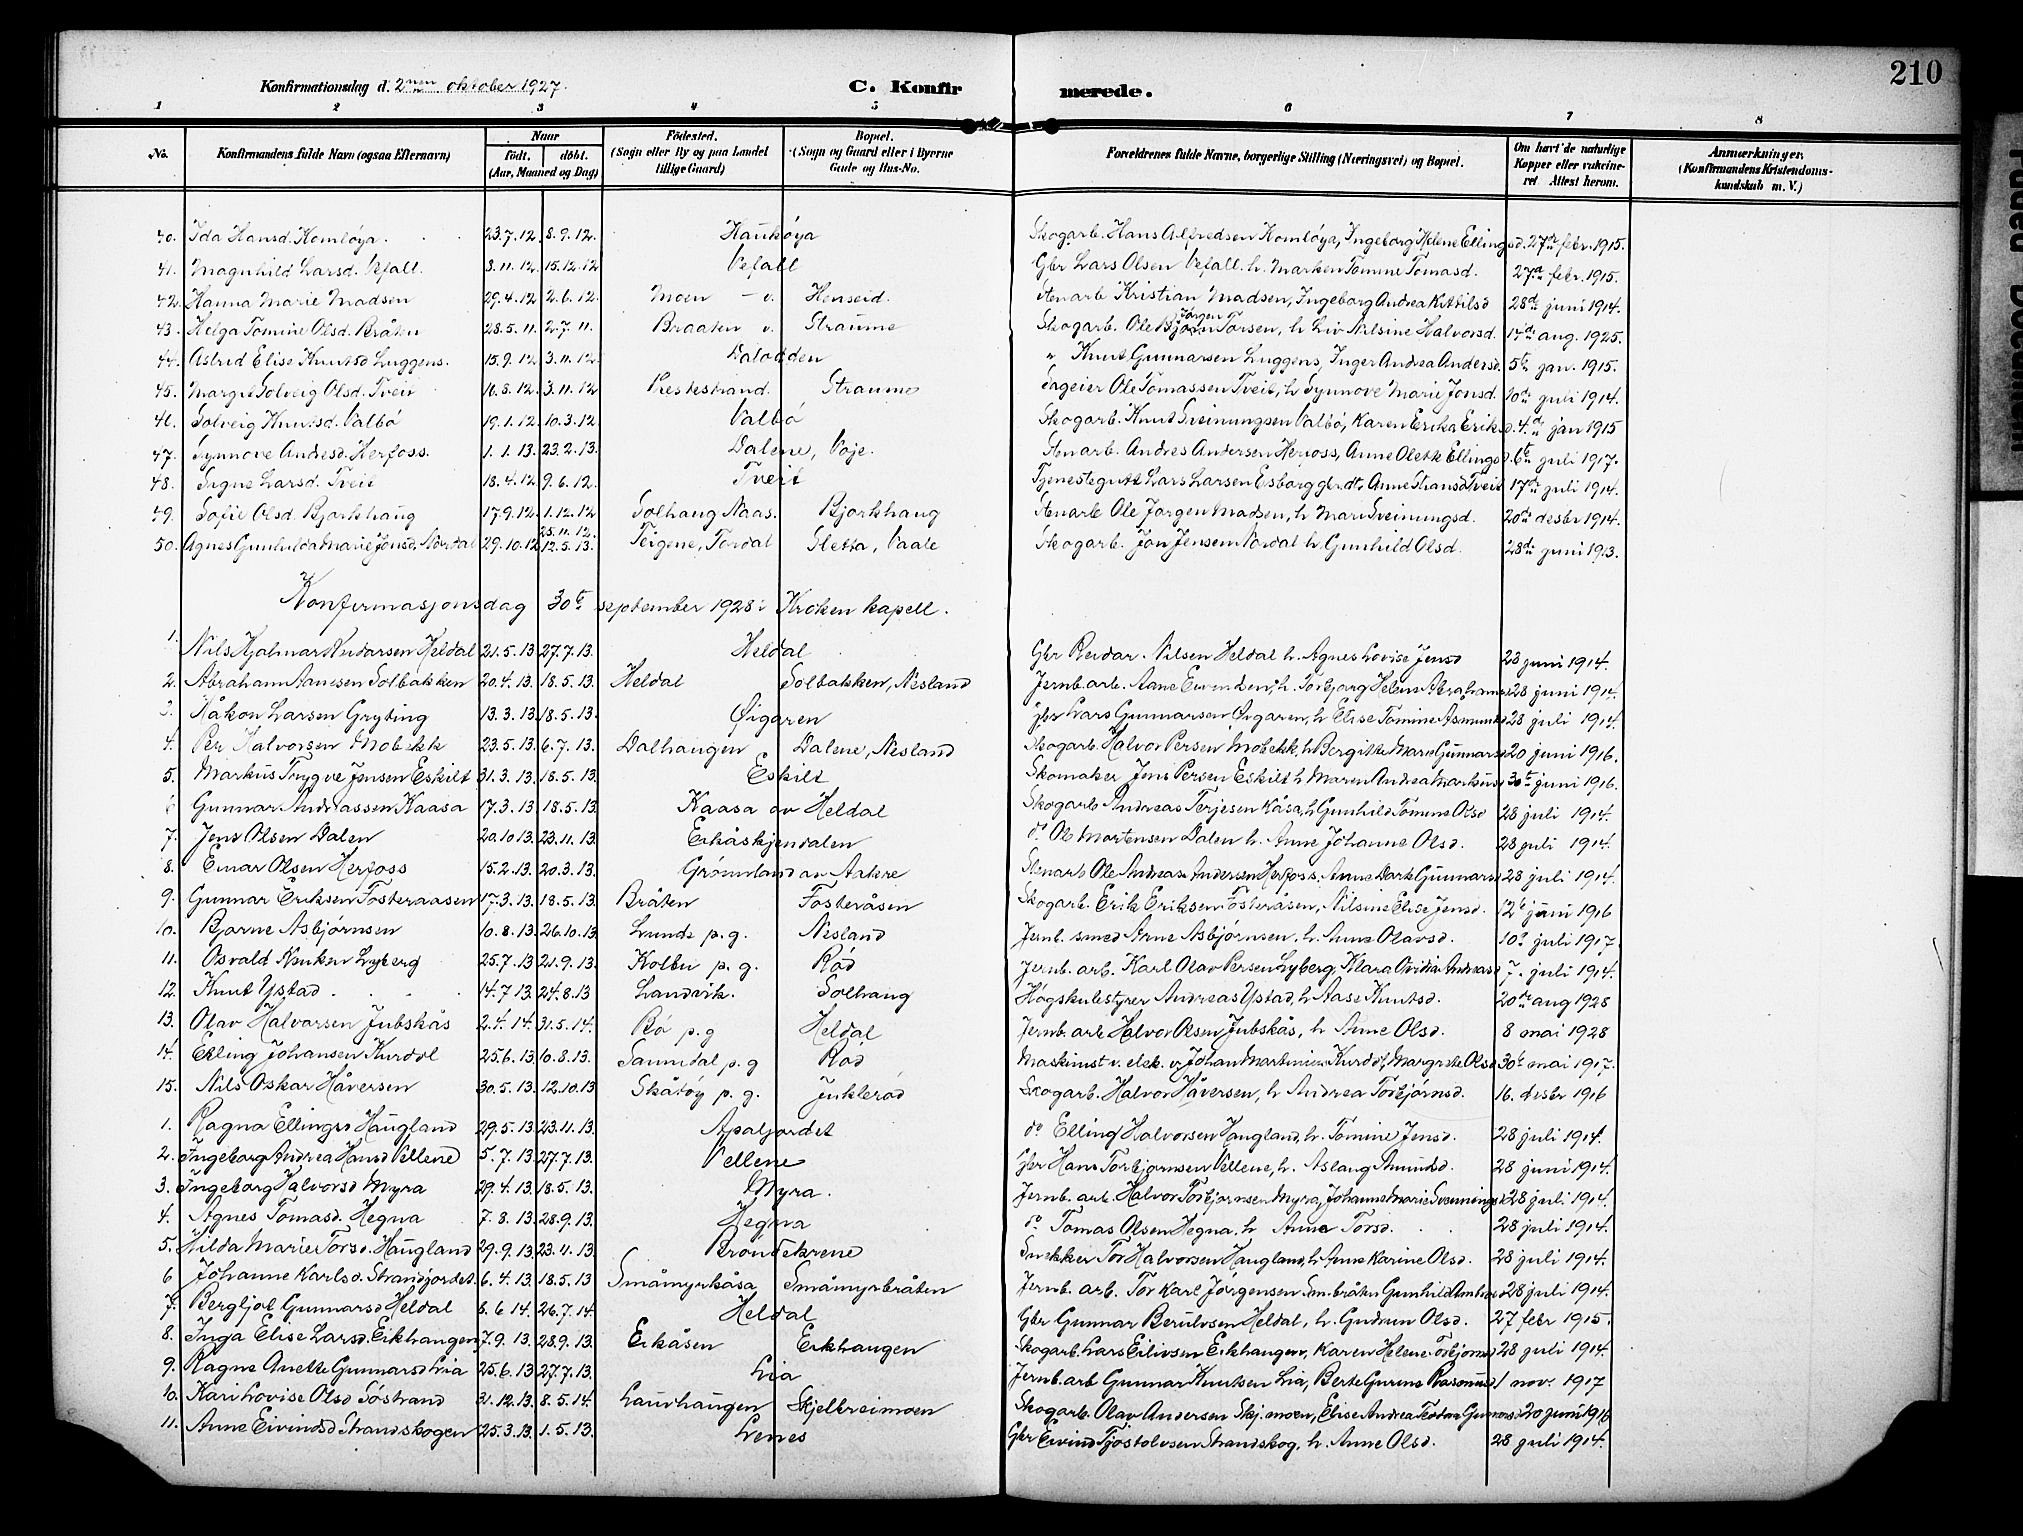 210
Konfirmationsdag d. 2nen oktober 1927.
C. Konfirmerede.
1 2 3 4 5 6 7 8
No. Konfirmandens fulde Navn (ogsaa Efternavn) Naar födt. döbt. (Aar, Maaned og Dag) Födested. (Sogn eller By og paa Landet tillige Gaard) Bopæl. (Sogn og Gaard eller i Byerne Gade og Hus-No. Forældrenes fulde Navne, borgerlige Stilling (Næringsvei) og Bopæl. Om havt de naturlige Kopper eller vakcineret Attest herom. Anmærkninger. (Konfirmandens Kristendomskundskab m. V.)
40. Ida Hansd. Homløya. 23.7.12. 8.9.12. Haukøya Skogarb. Hans Alfredsen Homløya, Ingeborg Helene Ellingsd. 27de febr. 1915.
41. Magnhild Larsd. Vefall. 3.11.12. 15.12.12 Vefall Gbr Lars Olsen Vefall. h. Marken Tomine Tomasd. 27de febr. 1915.
42. Hanna Marie Madsen 29.4.12 2.6.12. Moen - v. Henseid. Stenarb Kristian Madsen, Ingeborg Andrea Kittilsd 28de juni 1914.
43. Helga Tomine Olsd. Bråten 28.5.11. 2.7.11. Braaten v. Straume Skogarb. Ole Jørgen Torsen, h Liv Nilsine Halvorsd. 14de aug. 1925.
44. Astrid Elise Knutsd Luggens. 15.9.12 3.11.12 Dalodden " Knut Gunnarsen Luggens, Inger Andrea Andersd. 5te jan. 1915.
45. Margit Solveig Olsd. Tveit 16.8.12. 3.11.12 Kestestrand. Straume Sageier Ole Tomassen Tveit, h Synnove Marie Jonsd. 10de juli 1914.
46. Solveig Knutsd. Valbö 19.1.12. 10.3.12 Valbö Skogarb. Knut Sveinungsen Valbö, Karen Erika Eriksd. 4de jan 1915
47. Synnove Andresd. Herfoss. 1.1.13. 23.2.13. Dalene, Voje. Stenarb. Andres Andersen Herfoss, Anne Olette Ellingsd. 6te juli 1917.
48. Signe Larsd. Tveit 18.4.12 9.6.12. Tveit Tjenestegutt Lars Larsen Esborg gbr.dtr. Anne Stiansd Tveit 17de juli 1914.
49. Sofie Olsd. Bjorkhaug 17.9.12. 1.12.12 Solhaug Naas. Bjorkhaug Stenarb Ole Jørgen Madsen, h Mari Sveinungsd. 20de desbr 1914.
50. Agnes Gunhilda Marie Jonsd. Nordal 29.10.12 25.11.12. 12.5.13. Teigene, Tørdal Sletta, Vaale Skogarb. Jon Jensen Nordal h. Gunhild Olsd. 28de juni 1913.
Konfirmasjonsdag 30te september 1928 i Kroken kapell.
1. Nils Hjalmar Reidarsen Heldal 21.5.13 27.7.13. Heldal Gbr Reidar Nilsen Heldal h. Agnes Lovise Jensd 28 juni 1914.
2. Abraham Aanesen Solbakken 20.4.13. 18.5.13. Heldal Solbakken, Nesland Jernb. arb. Aane Eivindsen, h. Torbjorg Helene Abrahams 28 juni 1914.
3. Håkon Larsen Gryting 13.3.13 18.5.13. Øigaren gbr Lars Gunnarsen Øigaren, h Elise Tomine Asmunds 28 juli 1914.
4. Per Halvorsen Mobekk 23.5.13. 6.7.13. Dalhaugen Dalene, Nesland Skogarb. Halvor Persen Mobekk h Bergitte Marie Gunnars 20 juni 1916.
5. Markus Trygve Jensen Eskilt 31.3.13. 18.5.13. Eskilt Skomaker Jens Persen Eskilt h Maren Andrea Markus 30te juni 1916.
6 Gunnar Andreassen Kaasa 17.3.13. 18.5.13. Kaasa av Heldal Skogarb Andreas Terjesen Kåsa, h Gunhild Tomine Olsd 28 juli 1914.
7. Jens Olsen Dalen 20.10.13. 23.11.13. Eikåskjendalen do Ole Mortensen Dalen h. Anne Johanne Olsd. 28 juli 1914.
8. Einar Olsen Herfoss 15.2.13. 20.3.13. Grønnland av Aakre Stenarb Ole Andreas Andersen Herfoss. Anne Marte Gunnars 28 juli 1914.
9. Gunnar Eriksen Fosteraasen 17.3.13. 18.5.13. Bråten Fosteråsen Skogarb. Erik Eriksen Fosteråsen, Nilsine Elise Jensd. 12te juni 1916
10. Bjarne Asbjørnsen 10.8.13. 26.10.13. Lunde p.g. Nesland Jernb. smed Arne Asbjørnsen, h. Anne Olavsd. 10de juli 1917.
11. Osvald Lyberg 25.7.13 21.9.13. Kolbu p.g. Råd Jernb. arb. Karl Olav Persen Lyberg, Klara Ovidia Andreasd 7. juli 1914.
12. Knut Ystad. 14.7.13. 24.8.13 Landvik. Solhaug Høgskulestyrer Andreas Ystad, h Aase Knutsd. 20de aug 1928
13. Olav Halvorsen Jubskås 2.4.14. 31.5.14. Bö p.g Heldal Jernb. arb Halvor Olsen Jubskås, h Anne Olsd. 8 mai 1928
14. Erling Johansen Kurdöl 25.6.13. 10.8.13. Sannidal p.g Råd Maskinist v. elek. v. Johan Martinius Kurdöl, Margrete Olsd 30te mai 1917.
15. Nils Oskar Håversen 30.5.13. 12.10.13 Skåtöy p.g. Junkleröd Skogarb. Halvor Håversen, h Andrea Torbjørnsd. 16. desbr 1916
1. Ragna Ellingsd Haugland 29.5.13 23.11.13. Apaljordet do Elling Halvorsen Haugland, h. Tomine Jensd. 28 juli 1914.
2. Ingeborg Andrea Hansd Vellene 5.7.13. 27.7.13. Vellene Gbr Hans Torbjørnsen Vellene, h. Aslaug Amundsd. 28 juni 1914.
3. Ingeborg Halvorsd Myra 29.4.13. 18.5.13. Myra. Jernb. arb. Halvor Torbjørnsen Myra, Johanne Marie Sveinungs 28 juli 1914.
4. Agnes Tomasd. Hegna 7.8.13. 28.9.13. Hegna do Tomas Olsen Hegna, h Anne Torsd. 28 juli 1914.
5. Hilda Marie Torsd. Haugland 29.9.13 23.11.13. Brøndekrene Snekker Tor Halvorsen Haugland, h. Anne Karine Olsd. 28 juli 1914.
6 Johanne Karlsd. Strandjordet 6.4.13. 18.5.13 Småmyrkåsa Småmyrbråten Jernb. arb. Tor Karl Jörgensen Sm.bråten Gunhild 28 juli 1914.
7. Bergljot Gunnarsd Heldal 8.6.14. 26.7.14. Heldal Gbr Gunnar Berulvsen Heldal, h. Gudrun Olsd. 27 febr 1915.
8. Inga Elise Larsd. Eikhaugen 7.9.13. 28.9.13. Eikåsen Eikhaugen Skogarb. Lars Eilivsen Eikhaugen, Karen Helene Torbjørns 28 juli 1914.
9. Ragna Anette Gunnarsd Lia 25.6.13 27.7.13. Lia Jernb. arb Gunnar Knutsen Lia, Berte Gurine Rasmusd 1 nov. 1917
10. Kari Lovise Olsd Tostrand 31.12.13. 8.5.14. Laurhaugen Skjelbreimoen Skogarb. Olav Andersen Skj.moen, Elise Andrea Gunnars 20 juni 1916
11. Anne Eivindsd Strandskogen 25.3.13. 1.5.13. Lenes Gbr Eivind Tjostolvsen Strandskog, h. Anne Olsd. 28 juli 1914.
Faded Document